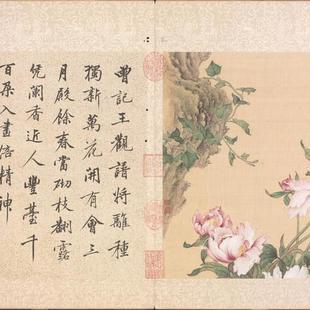 曾記王觀譜將離種
獨新萬花開有會三
月殿餘春當砌枝翻露
凭闌香近人豐臺千
百朶入畫倍精神